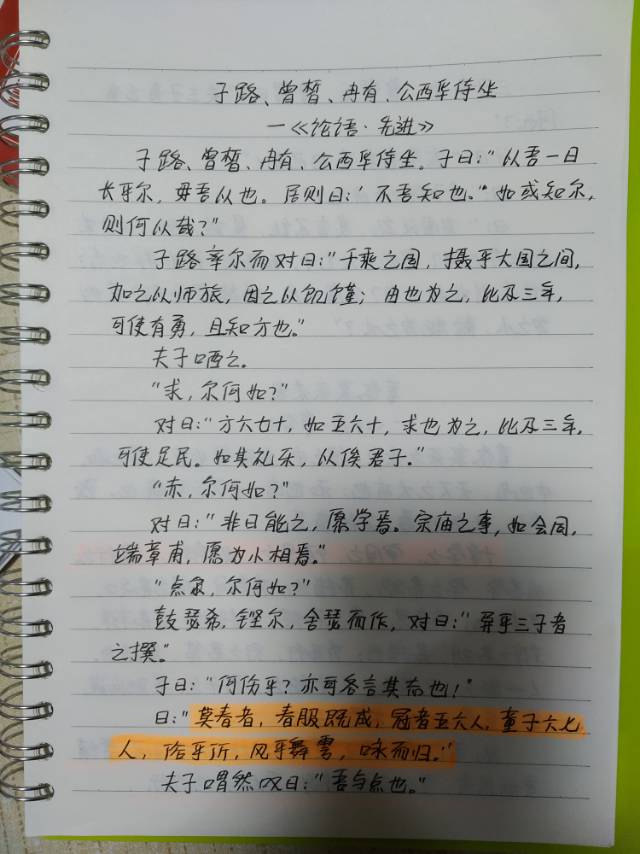 子路、曾皙、冉有、公西华侍坐
—《论语·先进》
子路、曾皙、冉有、公西华侍坐。子曰："以吾一日
长乎尔，毋吾以也。居则曰：'不吾知也。"如或知尔，
则何以哉？"
子路率尔而对曰："千乘之国，摄乎大国之间，
加之以师旅，因之以饥馑；由也为之，比及三年，
可使有勇，且知方也。"
夫子哂之。
"求，尔何如？"
对曰："方六七十，如五六十，求也为之，比及三年，
可使足民。如其礼乐，以俟君子。"
"赤，尔何如？"
对曰："非曰能之，愿学焉。宗庙之事，如会同，
端章甫，愿为小相焉。"
"点，尔何如？"
鼓瑟希，铿尔，舍瑟而作，对曰："异乎三子者
之撰。"
子曰："何伤乎？亦可各言其志也！"
曰："莫春者，春服既成，冠者五六人，童子六七
人，浴乎沂，风乎舞雩，咏而归。"
夫子喟然叹曰："吾与点也。"